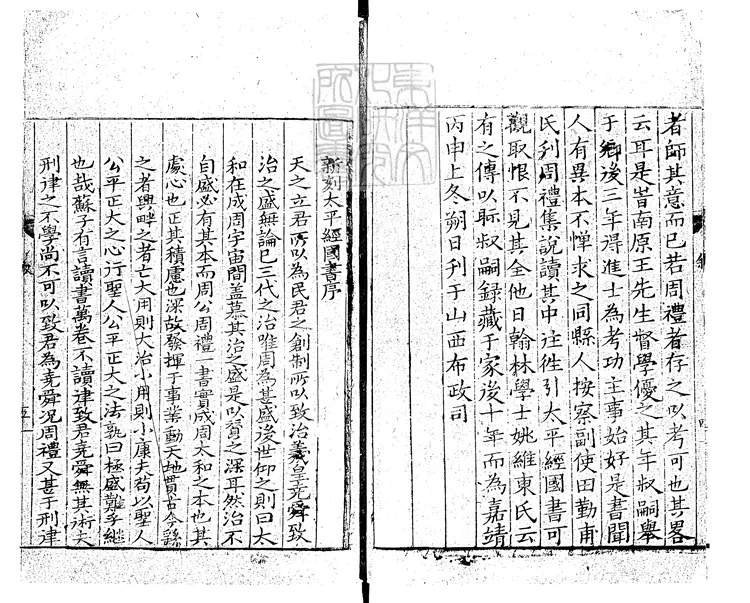 者師其意而已若周禮者存之以考可也其畧
云耳是書南原王先生督學優之其年叔嗣舉
于鄉後三年得進士為考功主事始好是書聞
人有異本不憚求之同縣人按察副使田勤甫
氏刋周禮集說讀其中往徃引太平經國書可
觀取恨不見其全他日翰林學士姚維東氏云
有之傳以眎叔嗣録藏于家後十年而為嘉靖
丙申上冬朔日刋于山西布政司
新刻太平經國書序
天之立君所以為民君之創制所以致治羲皇堯舜致
治之盛無論已三代之治唯周為甚盛後世仰之則曰太
和在成周宇宙間盖慕其治之盛是以贊之深耳然治不
自盛必有其本而周公周禮一書實成周太和之本也其
處心也正其積慮也深故發揮于事業動天地貫古今繇
之者興畔之者亡大用則大治小用則小康夫苟以聖人
公平正大之心行聖人公平正大之法孰曰極盛難乎継
也哉蘇子有言讀書萬卷不讀律致君堯舜無其術夫
刑律之不學尚不可以致君為堯舜况周禮又甚于刑律